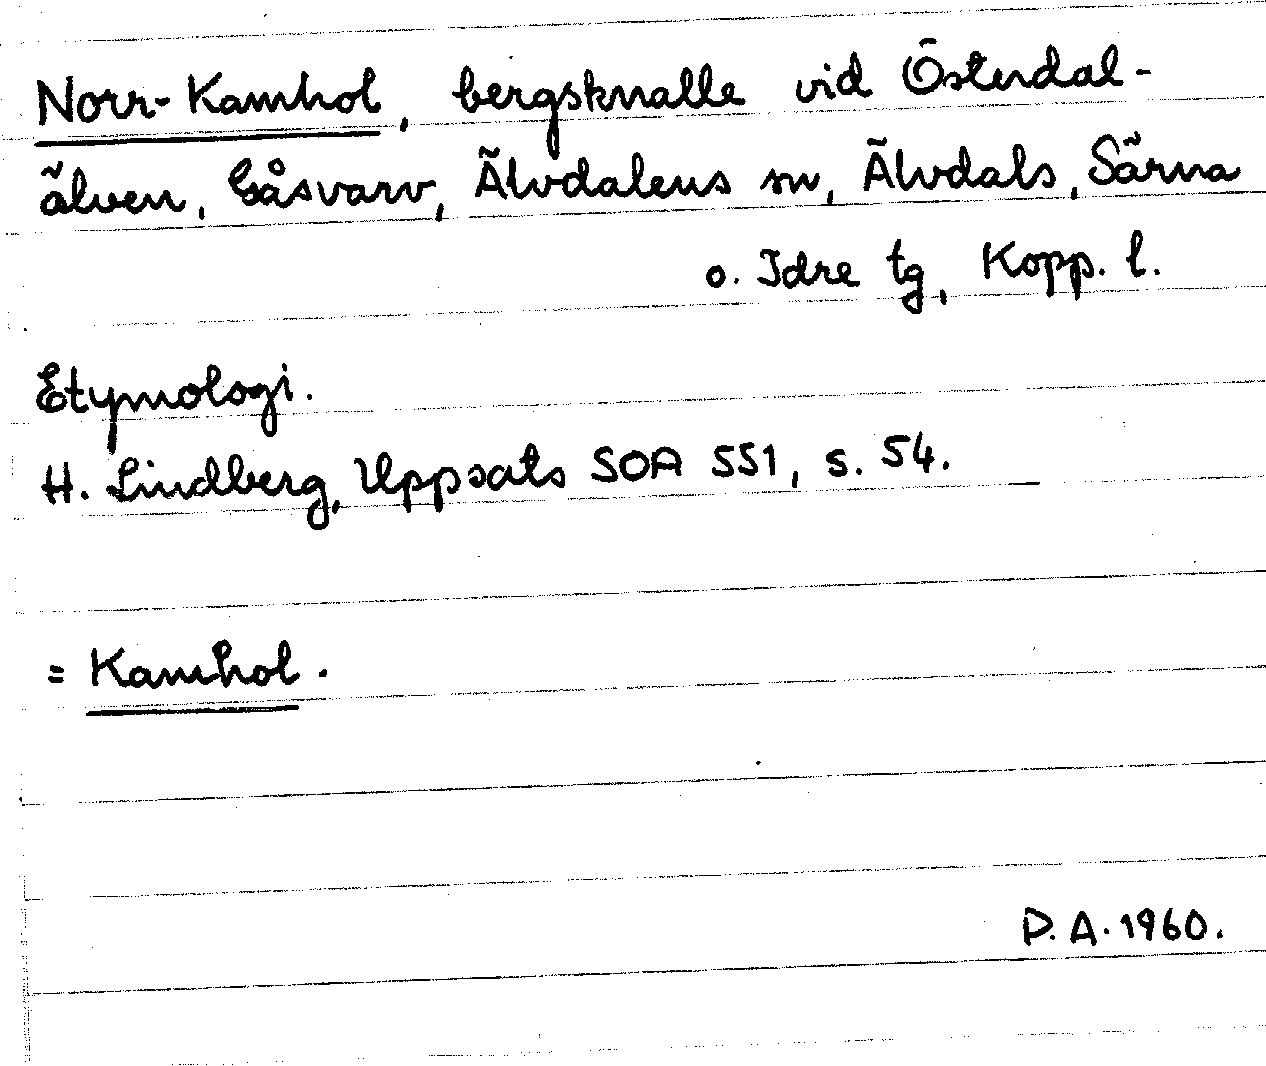 Norr-Kamhol, bergsknalle vid Österdal-
älven, Gåsvarv, Älvdalens sn, Älvdals, Särna
o. Idre tg, Kopp. l.
Etymologi.
H. Lindberg, Uppsats SOA 551, s. 54.
= Kamhol.
D. A. 1960.